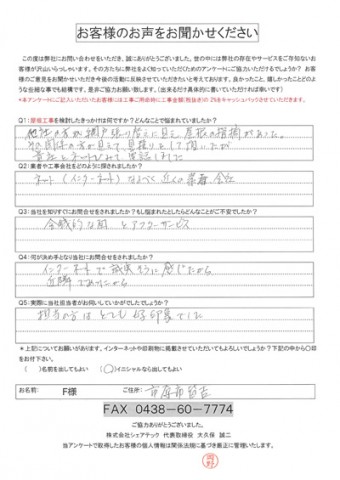 お客様のお声をお聞かせください
この度は弊社にお問い合わせをいただき、誠にありがとうございました。世の中には弊社の存在やサービスをご存知ないお
客様が沢山いらっしゃいます。その方たちに弊社をよく知っていただくためのアンケートにご協力いただけるでしょうか？お客
様のご意見をお聞かせいただき今後の活動に反映させていきたいと考えております。良かったこと、嬉しかったことどのよ
うな些細な事でも結構です、是非ご協力お願い致します。(出来るだけ具体的に書いていただけるとありがたいです)
*本アンケートにご記入いただいたお客様には工事ご用命時に工事金額(税抜き)の2%をキャッシュバックさせていただきます。
Q1：屋根工事を検討したきっかけは何ですか？どんなことで悩まれていましたか？
他社の方が網戸張り替えに見え、屋根の指摘があった。
が見えて、見積りをして頂いたが
Q2：業者や工事会社をどのように探されましたか？
ネット(インターネット) 近くの業者、会社
Q3：当社を知りすぐにお問合せをされましたか？もし悩まれたとしたらどんなことがご不安でしたか？
金銭的な面とアフターサービス
Q4：何が決め手となり当社にお問合せをされましたか？
インターネットで誠実そうに感じたから
近隣であったから
Q5：実際に当社担当者がお伺いしていかがでしたでしょうか？
担当の方はとても好印象でした
＊上記についてお願いがあります。インターネットや印刷物に掲載させていただいてもよろしいでしょうか？下記の中から○印
をお付け下さい。
(　)名前を出してもよい　(○)イニシャルなら出してもよい
お名前：　F様　ご住所：市原市
FAX 0438-60-7774
ご協力ありがとうございました。
株式会社シェアテック　代表取締役　大久保　誠二
当アンケートで取得したお客様の個人情報は関係法規に基づき厳正に管理いたします。